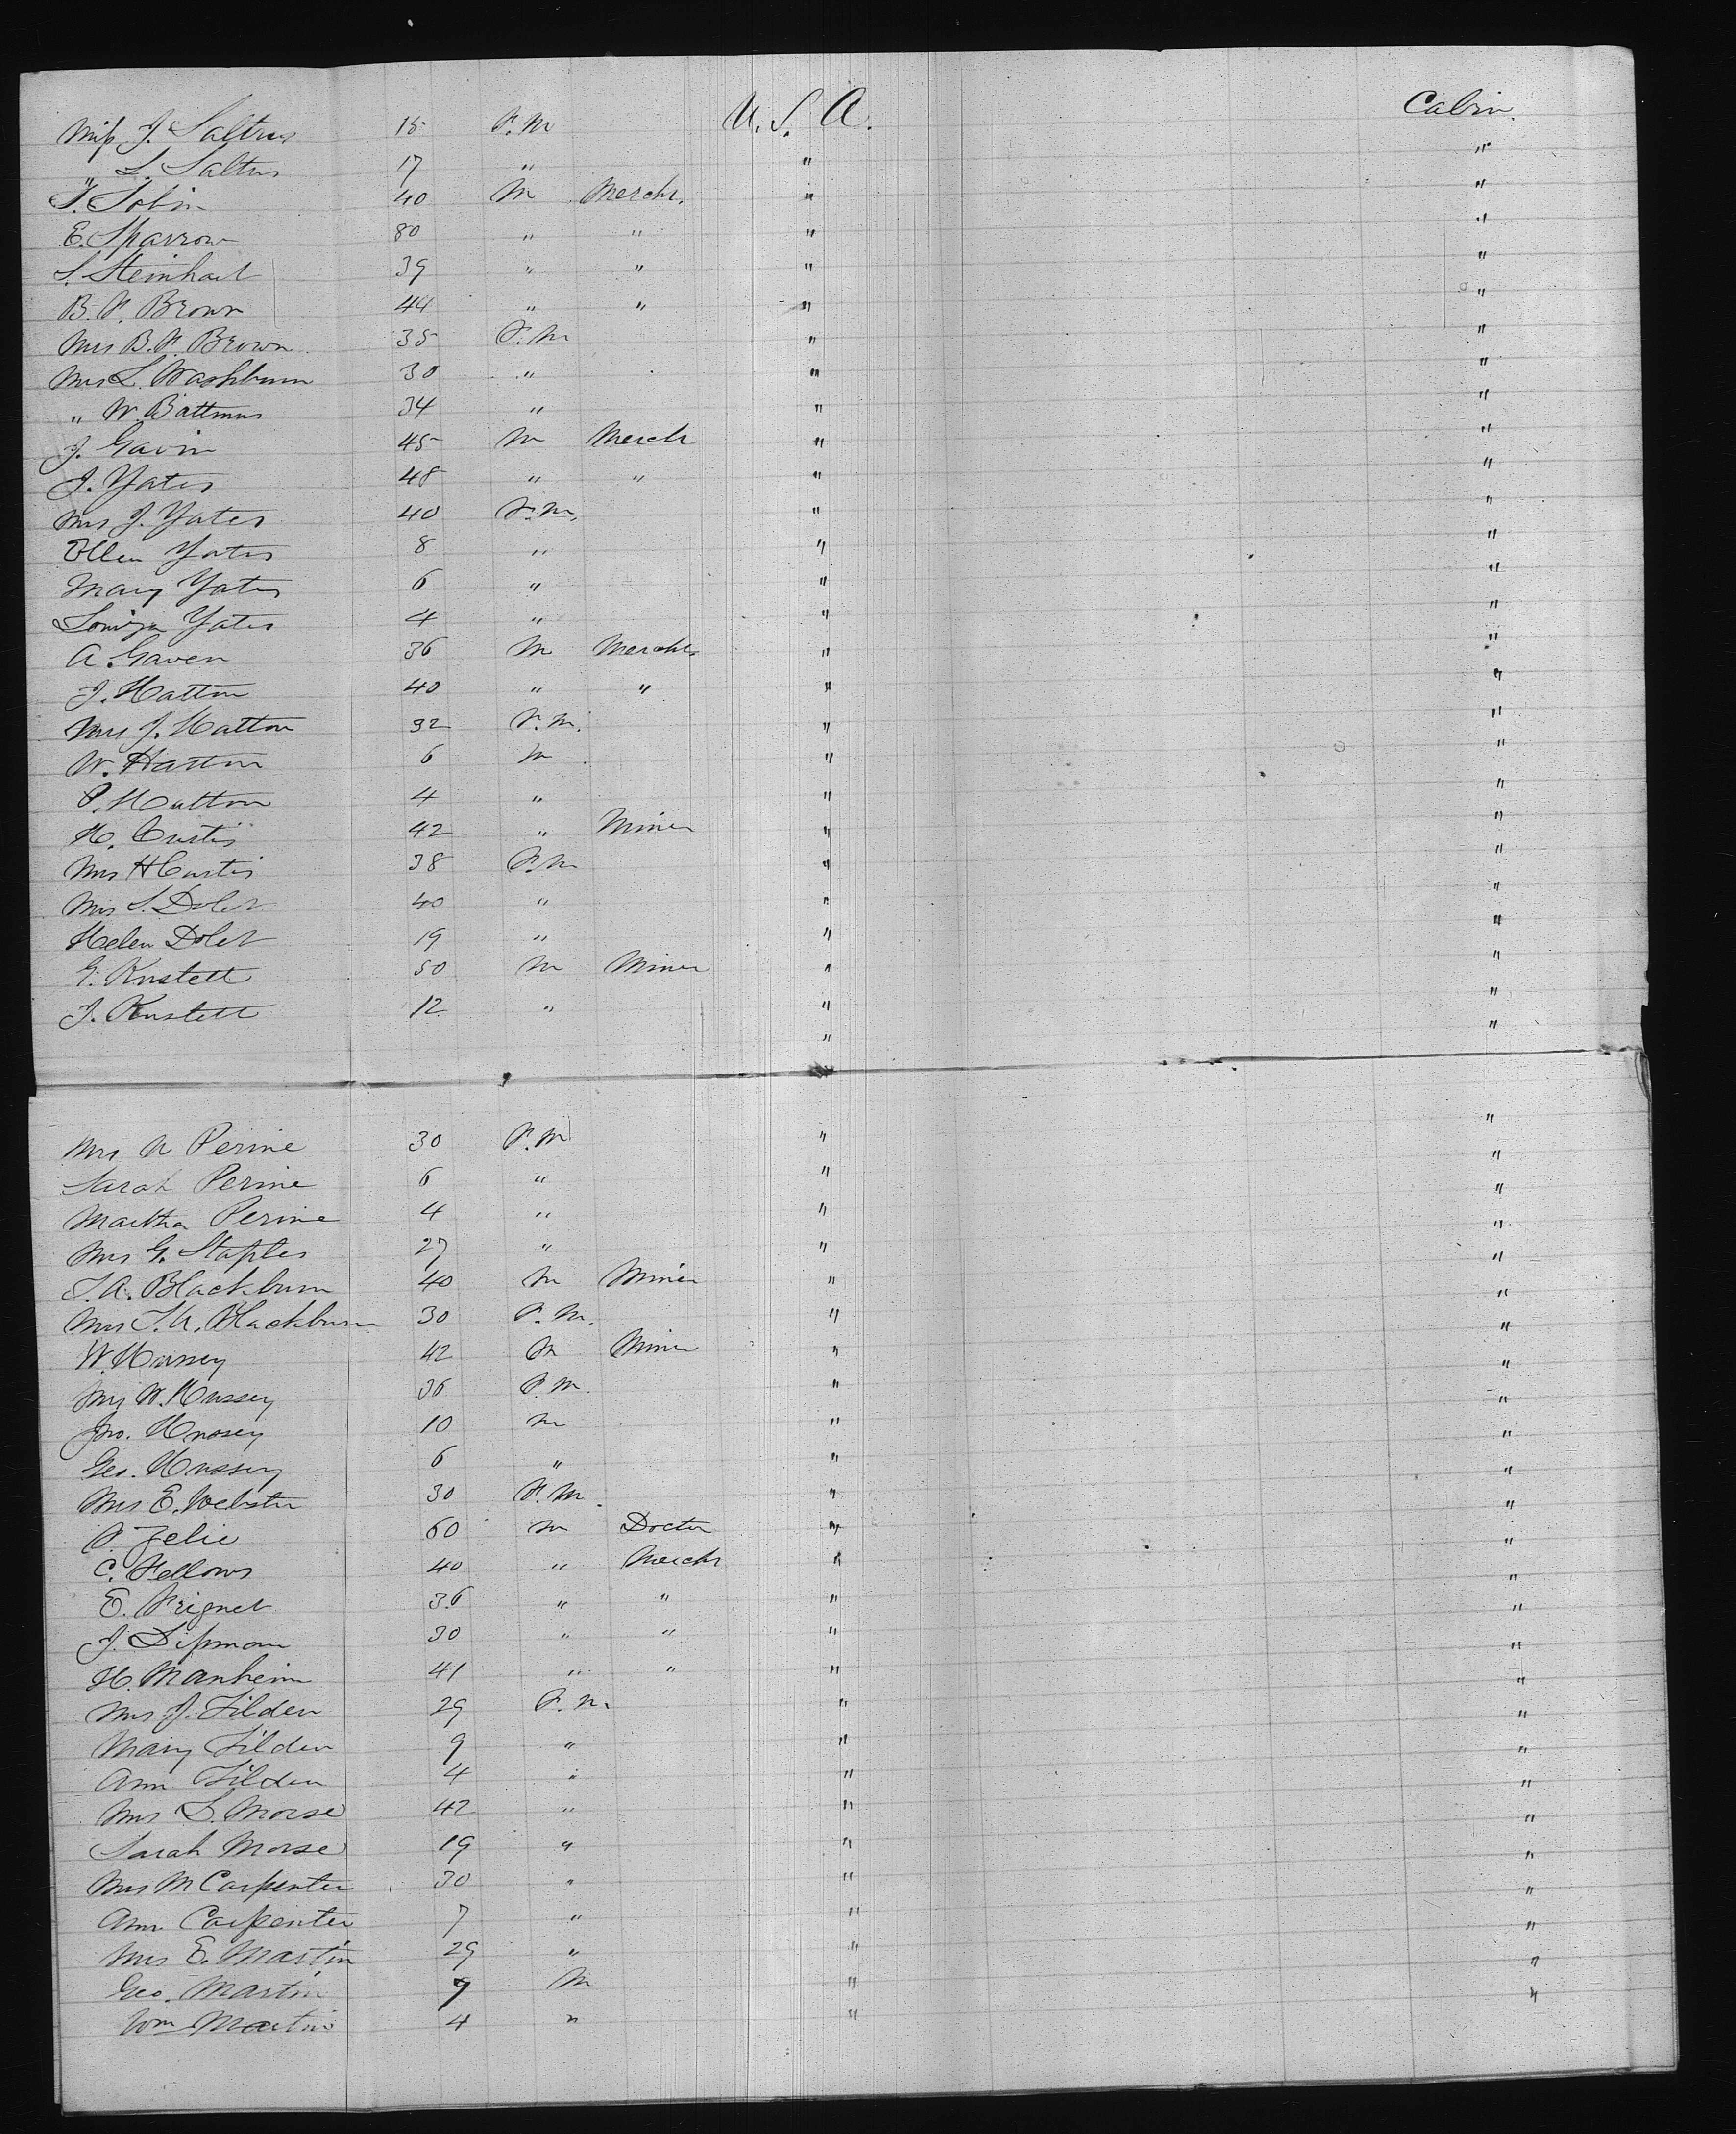 Miss J. Saltus 15 F.M U.S.A. Cabin.
" L. Saltus 17 " " "
T. Tobin 40 M Mercht. " "
E. Sparrow 80 " " " "
S. Steinhart 39 " " " "
B. F. Brown 44 " " " "
Mrs B. F. Brown 35 F.M " "
Mrs L. Washburn 30 " " "
" W. 34 " " "
J. Gavin 45 M Mercht " "
J. Yates 48 " " " "
Mrs J. Yates 40 F.M. " "
Ellen Yates 8 " " "
Mary Yates 6 " " "
Louiza Yates 4 " " "
A. Gaven 36 M Mercht. " "
J. Hatton 40 " " " "
Mrs J. Hatton 32 F.M. " "
W. Hatton 6 M " "
P. Hatton 4 " " "
H. Curtis 42 " Miner " "
Mrs H Curtis 38 F.M " "
Mrs S. Dolet 40 " " "
Helen Dolet 19 " " "
G. Kustett 50 M Miner " "
J. Kustett 12 " " "
" "
Mrs A Perine 30 F.M " "
Sarah Perine 6 " " "
Martha Perine 4 " " "
Mrs G. Staples 27 " " "
T. A. Blackburn 40 M Miner " "
Mrs T. A. Blackburn 30 F.M. " "
W. Hussey 42 M Miner " "
Mrs W. Hussey 36 F.M. " "
Jno. Hussey 10 M " "
Geo. Hussey 6 " " "
Mrs E. Webster 30 F.M. " "
P. Zelie 60 M Doctor " "
C. Fellows 40 " Mercht " "
E. Frignet 36 " " " "
J. Lipman 30 " " " "
H. Manheim 41 " " " "
Mrs J. Tilden 29 F.M. " "
Mary Tilden 9 " " "
Ann Tilden 4 " " "
Mrs L. Morse 42 " " "
Sarah Morse 19 " " "
Mrs M Carpenter 30 " " "
Ann Carpenter 7 " " "
Mrs E. Martin 29 " " "
Geo. Martin 9 M " "
Wm Martin 4 " " "